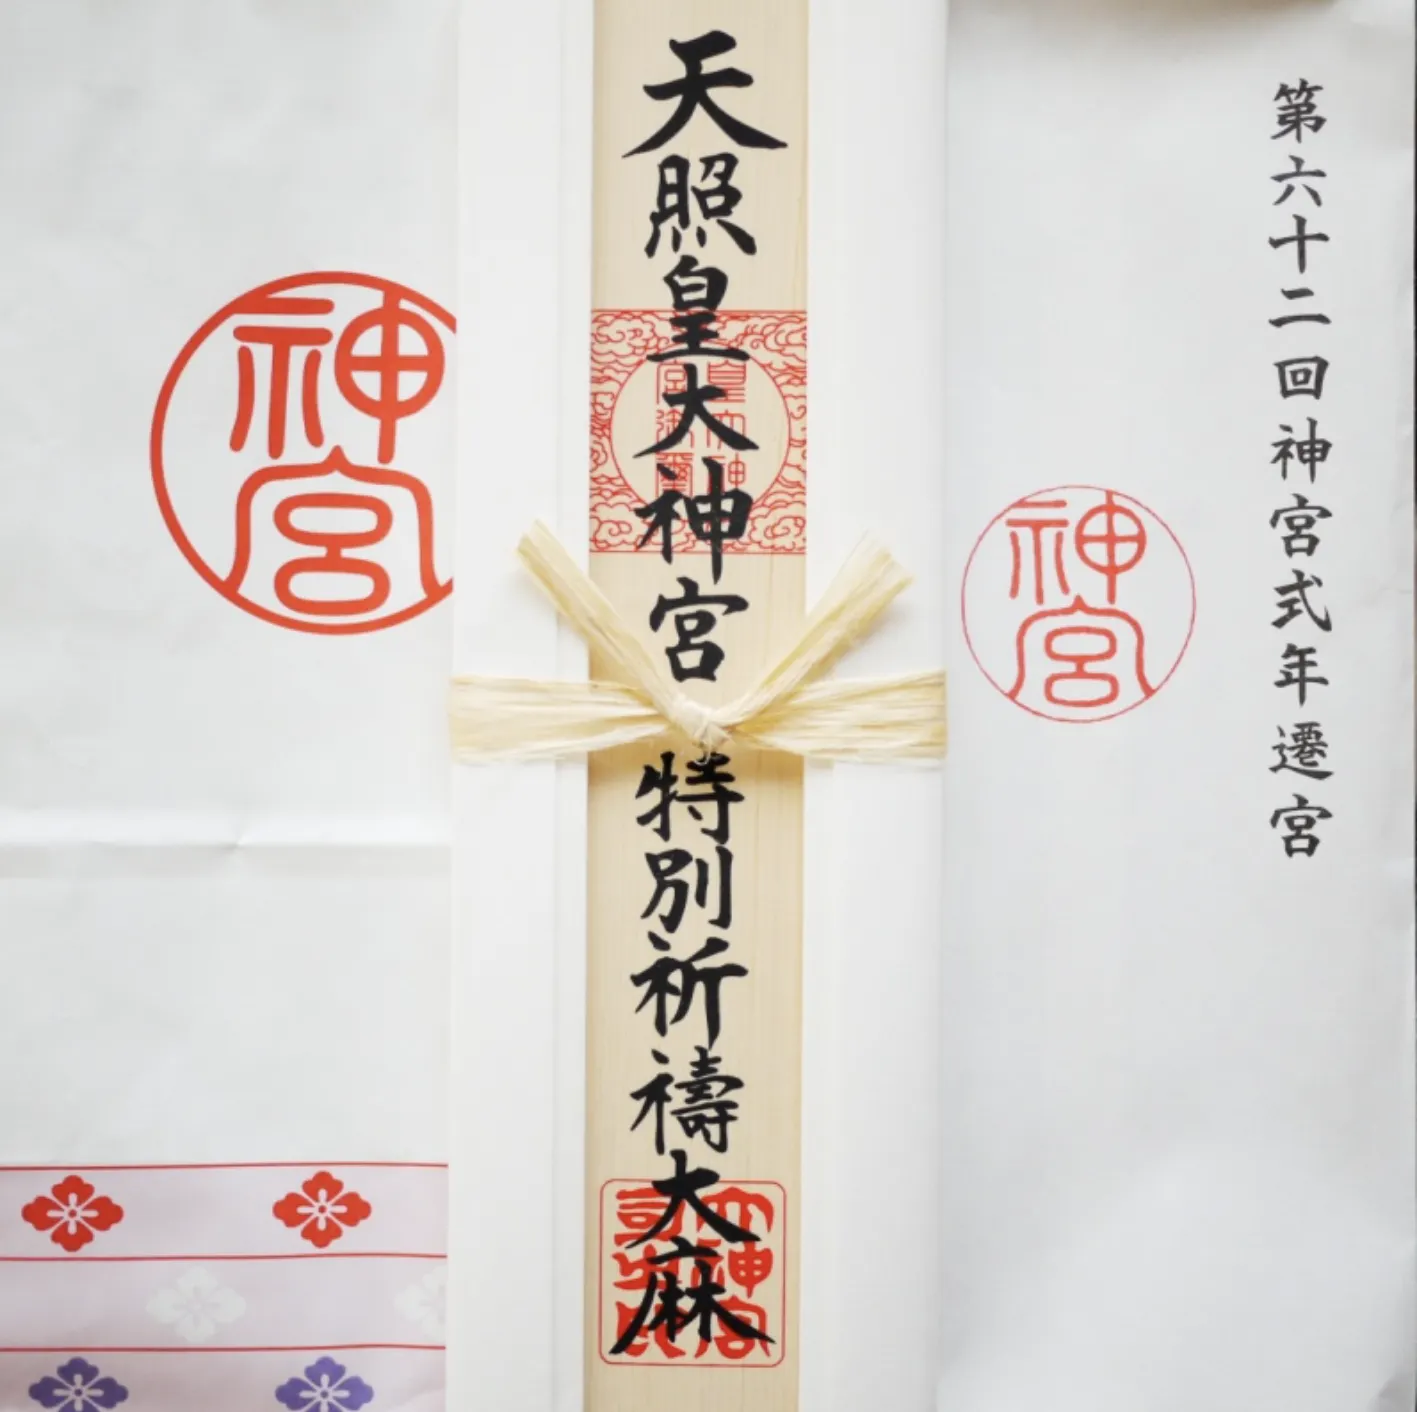 第六十二回神宮式年遷宮
神宮
天照皇大神宮 特別祈禱大麻
皇大神
宮御璽
大神宮
司之印
神宮